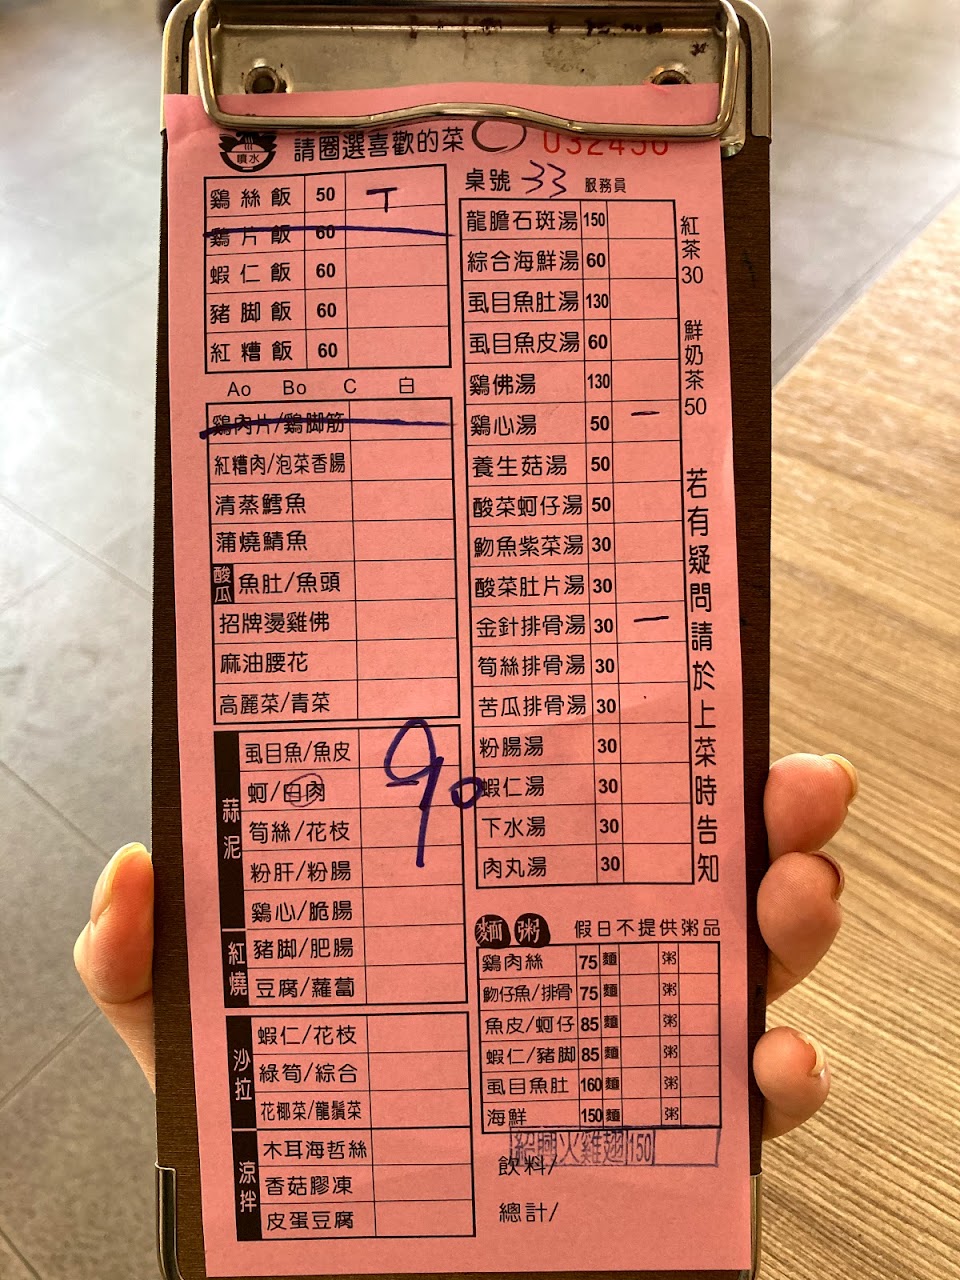 噴水
請圈選喜歡的菜
032456
桌號 33 服務員
鷄絲飯 50 T
鷄片飯 60
蝦仁飯 60
豬脚飯 60
紅糟飯 60
Ao Bo C 白
鷄肉片/鷄脚筋
紅糟肉/泡菜香腸
清蒸鱈魚
蒲燒鯖魚
酸瓜 魚肚/魚頭
招牌燙雞佛
麻油腰花
高麗菜/青菜
蒜泥
虱目魚/魚皮
蚵/白肉 90
筍絲/花枝
粉肝/粉腸
鷄心/脆腸
紅燒
豬脚/肥腸
豆腐/蘿蔔
沙拉
蝦仁/花枝
綠筍/綜合
花椰菜/龍鬚菜
涼拌
木耳海哲絲
香菇膠凍
皮蛋豆腐
龍膽石斑湯 150
綜合海鮮湯 60
虱目魚肚湯 130
虱目魚皮湯 60
鷄佛湯 130
鷄心湯 50 一
養生菇湯 50
酸菜蚵仔湯 50
魩魚紫菜湯 30
酸菜肚片湯 30
金針排骨湯 30 一
筍絲排骨湯 30
苦瓜排骨湯 30
粉腸湯 30
蝦仁湯 30
下水湯 30
肉丸湯 30
紅茶30 鮮奶茶50
若有疑問請於上菜時告知
麵 粥 假日不提供粥品
鷄肉絲 75 麵 粥
魩仔魚/排骨 75 麵 粥
魚皮/蚵仔 85 麵 粥
蝦仁/豬脚 85 麵 粥
虱目魚肚 160 麵 粥
海鮮 150 麵 粥
紹興火雞翅 150
飲料/
總計/